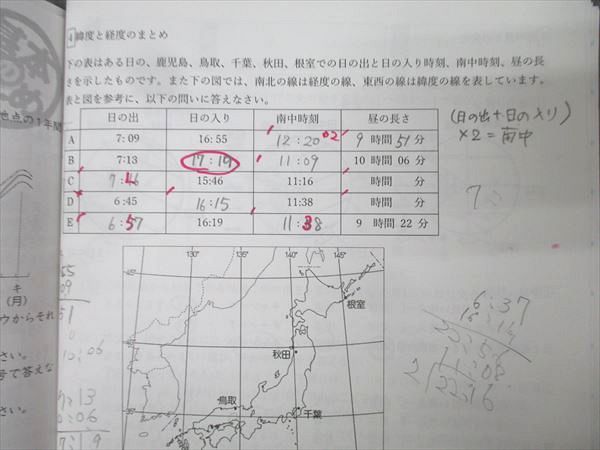 4 緯度と経度のまとめ
下の表はある日の、鹿児島、鳥取、千葉、秋田、根室での日の出と日の入り時刻、南中時刻、昼の長
さを示したものです。また下の図では、南北の線は経度の線、東西の線は緯度の線を表しています。
表と図を参考に、以下の問いに答えなさい。
日の出 日の入り 南中時刻 昼の長さ
A 7:09 16:55 12:20 02 9 時間 51 分
B 7:13 17:19 11:09 10 時間 06 分
C 7:46 15:46 11:16 時間 分
D 6:45 16:15 11:38 時間 分
E 6:57 16:19 11:38 9 時間 22 分
(日の出+日の入り)
×2=南中
7
地点の1年間
キ
(月)
ウからそれ
さい。
号で答えな
さい。
55
09
51
10:06
13
:06
17:19
130°
135°
140°
145°
45°
40°
35°
根室
秋田
鳥取
千葉
6:37